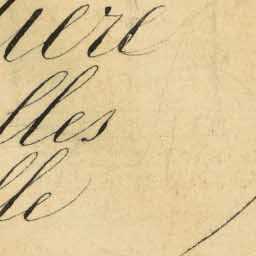 ière
lles
lle